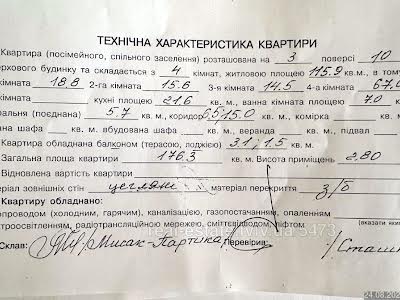 ТЕХНІЧНА ХАРАКТЕРИСТИКА КВАРТИРИ
Квартира (посімейного, спільного заселення) розташована на 3 поверсі 10
рхового будинку та складається з 4 кімнат, житловою площею 115.9 кв.м, в тому
кімната 18,8 2-га кімната 15.6 3-я кімната 14.5 4-а кімната 67.0
кімната кухні площею 21.6 кв. м, ванна кімната площею 7.0
альня (поєднана) 5.7 кв. м, коридор 6,5; 15.0 кв. м., комірка
ана шафа кв. м, вбудована шафа кв. м, веранда кв. м, підвал
Квартира обладнана балконом (терасою, лоджією) 3.1; 1.5 кв. м.
Загальна площа квартири 176.3 кв. м. Висота приміщень 2,80
Відновлена вартість квартири
еріал зовнішніх стін цегляні матеріал перекриття з/б
Квартиру обладнано:
опроводом (холодним, гарячим), каналізацією, газопостачанням, опаленням
троосвітленням, радіотрансляційною мережею, сміттєвідводом, ліфтом.
(вказати
Склав: Мисак-Партика Перевірив: Сташ
5473
24.08.202